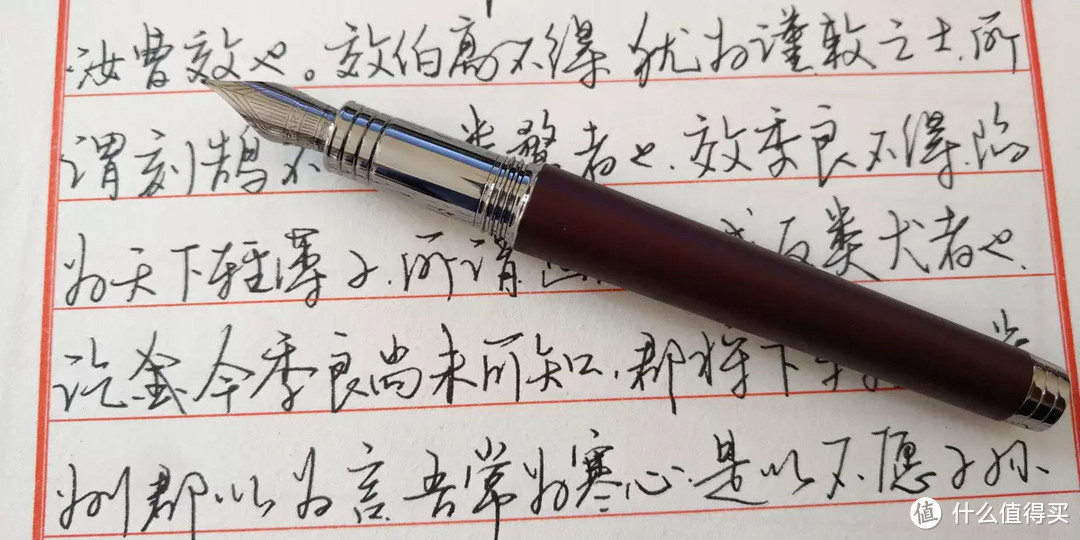 汝曹效也。效伯高不得犹为谨敕之士.所
谓刻鹄不类鹜者也.效季良不得.陷
为天下轻薄子.所谓反类犬者也.
讫今季良尚未所知.郡将下
州郡以为言.吾常为寒心.是以不愿子孙
值 什么值得买